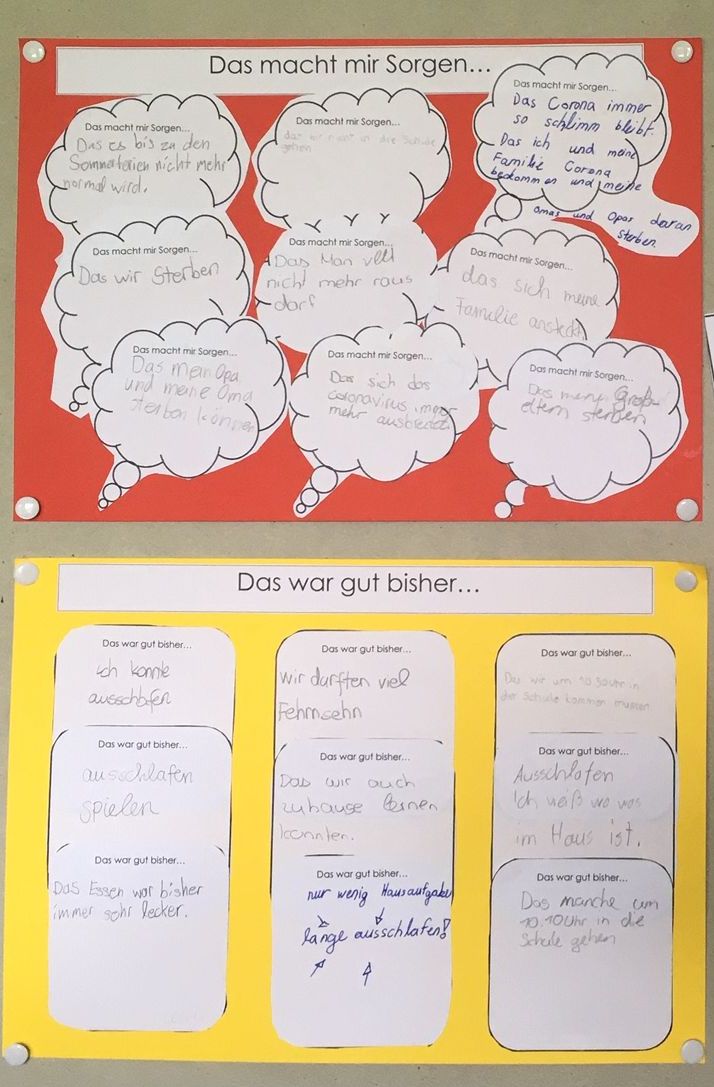 Das macht mir Sorgen...
Das macht mir Sorgen...
Das es bis zu den
Sommerferien nicht mehr
normal wird.
Das macht mir Sorgen...
das wir nicht in die Schule
gehen
Das macht mir Sorgen...
Das Corona immer
so schlimm bleibt.
Das ich und meine
Familie Corona
bekommen und meine
Omas und Opas daran
sterben
Das macht mir Sorgen...
Das wir Sterben
Das macht mir Sorgen...
Das Man
nicht mehr raus
darf
Das macht mir Sorgen...
das sich meine
Familie ansteckt
Das macht mir Sorgen...
Das mein Opa
und meine Oma
sterben können
Das macht mir Sorgen...
Das sich das
coronavirus immer
mehr ausbreitet
Das macht mir Sorgen...
Das meine Groß-
eltern sterben
Das war gut bisher...
Das war gut bisher...
ich konnte
ausschlafen
Das war gut bisher...
wir durften viel
Fehrnsehn
Das war gut bisher...
Das wir um 10 Uhr in
der Schule kommen mussen
Das war gut bisher...
ausschlafen
spielen
Das war gut bisher...
Das wir auch
zuhause lernen
konnten.
Das war gut bisher...
Ausschlafen
Ich weiß wo was
im Haus ist.
Das war gut bisher...
Das Essen war bisher
immer sehr lecker.
Das war gut bisher...
nur wenig Hausaufgaben
lange ausschlafen!
Das war gut bisher...
Das manche um
10.10Uhr in die
Schule gehen